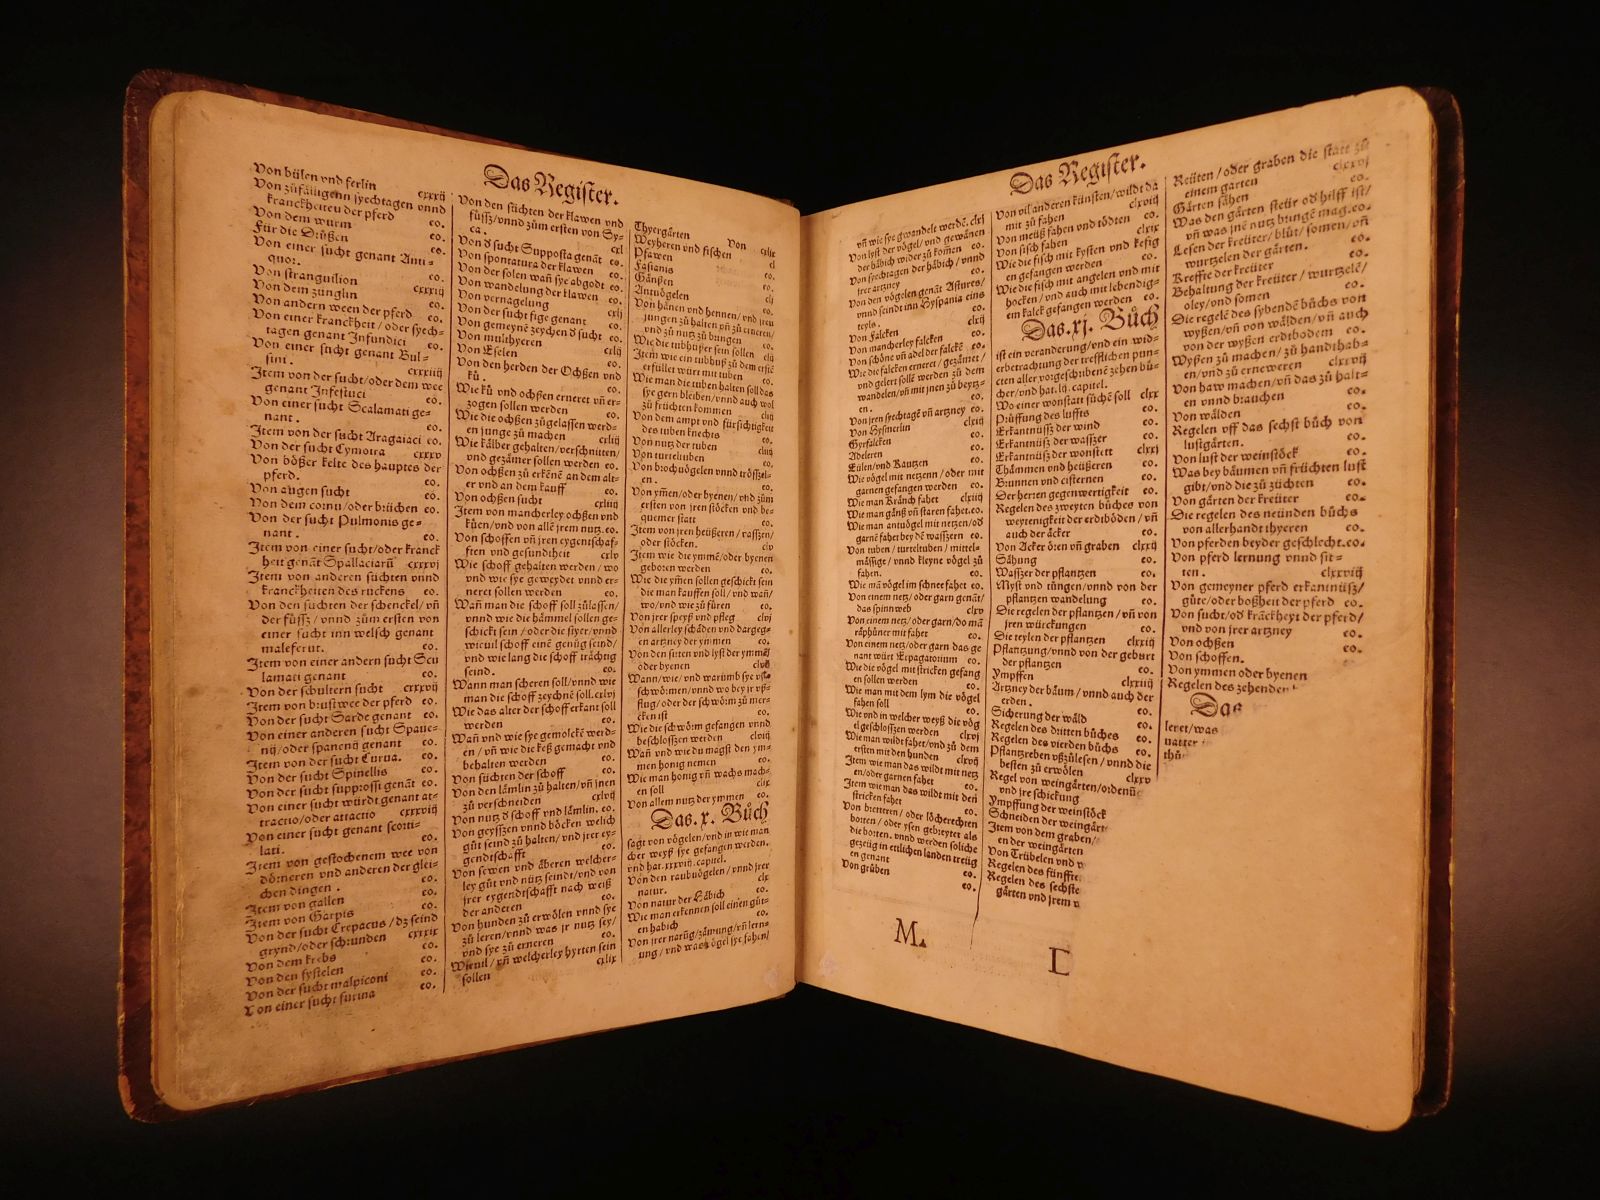 Das Register.
Von bülen vnd ferlin cxxxij
Von zůfälligenn syechtagen vnnd
kranckheiten der pferd eo.
Von dem wurm eo.
Für die Drüßen eo.
Von einer sucht genant Anti-
quor. eo.
Von stranguilion eo.
Von dem zünglin cxxxiij
Von andern ween der pferd eo.
Von einer kranckheit / oder syech-
tagen genant Infundici eo.
Von einer sucht genant Bul-
sini. cxxxiiij
Item von der sucht / oder dem wee
genant Infestuci eo.
Von einer sucht Scalamati ge-
nant. eo.
Item von der sucht Aragaiaci eo.
Von der sucht Cymoira cxxxv
Von bößer kelte des hauptes der
pferd. eo.
Von augen sucht eo.
Von dem cornu / oder brüchen eo.
Von der sucht Pulmonis ge-
nant. eo.
Item von einer sucht / oder kranck
heit genāt Spallaciarū cxxxvj
Item von anderen süchten vnnd
kranckheiten des ruckens eo.
Von den suchten der schenckel / vñ
der füssz / vnnd zům ersten von
einer sucht inn welsch genant
maleferut. eo.
Item von einer andern sucht Scu
lamati genant eo.
Von der schultern sucht cxxxvij
Item von brustwee der pferd eo.
Von der sucht Garde genant eo.
Von einer anderen sucht Spaue-
nij / oder spanenij genant eo.
Item von der sucht Curua. eo.
Von der sucht Spinellis eo.
Von der sucht supprossi genāt eo.
Von einer sucht würdt genant at-
tractio / oder attactio cxxxviij
Von einer sucht genant scorti-
lati. eo.
Item von gestochenem wee von
dörneren vnd anderen der glei-
chen dingen. eo.
Item von gallen eo.
Item von Garpis eo.
Von der sucht Crepacus / dz seind
grynd / oder schrunden cxxxix
Von dem krebs eo.
Von den fystelen eo.
Von der sucht malpiconi eo.
Von einer sucht furma eo.
Von den süchten der klawen vnd
füssz / vnnd zům ersten von Sy-
ca. cxl
Von d sucht Supposta genāt eo.
Von spontatura der klawen eo.
Von der solen wañ sye abgodt eo.
Von wandelung der klawen eo.
Von vernagelung cxlj
Von der sucht fige genant eo.
Von gemeynē zeychen d sucht eo.
Von multhyeren cxlij
Von Eselen eo.
Von den herden der Ochßen vnd
kü. eo.
Wie kü vnd ochßen erneret vñ er-
zogen sollen werden eo.
Wie die ochßen zůgelassen werd-
en junge zů machen cxliij
Wie kälber gehalten / verschnitten /
vnd gezämer sollen werden eo.
Von ochßen zů erkēnē an dem alt-
er vnd an dem kauff eo.
Von ochßen sucht cxliiij
Item von mancherley ochßen vnd
küen / vnd von allē jren nutz. eo.
Von schoffen vñ jren eygentschaf-
ften vnd gesundtheit cxlv
Wie schoff gehalten werden / wo
vnd wie sye geweydet vnnd er-
neret sollen werden eo.
Wañ man die schoff soll zůlassen /
vnnd wie die hämmel sollen ge-
schickt sein / oder die styer / vnnd
wieuil schoff einē genůg seind /
vnd wie lang die schoff trächtig
seind. eo.
Wann man scheren soll / vnnd wie
man die schoff zeychnē soll. cxlvj
Wie das alter der schoff erkant soll
werden eo.
Wañ vnd wie sye gemolckē werd-
en / vñ wie die keß gemacht vnd
behalten werden eo.
Von süchten der schoff eo.
Von den lämlin zů halten / vñ jnen
zů verschneiden cxlvij
Von nutz d schoff vnd lämlin. eo.
Von geyssen vnnd böcken welich
gůt seind zů halten / vnd jrer ey-
gendtschafft eo.
Von sewen vnd äberen welcher-
ley gůt vnd nütz seindt / vnd von
jrer eygendtschafft nach weiß
der anderen eo.
Von hunden zů erwölen vnnd sye
zů leren / vnnd was jr nutz sey /
vnd sye zů erneren eo.
Wieuil / vñ welcherley hyrten sein
sollen cxlix
Thyergärten Von cxlix
Weyheren vnd fischen cl
Pfawen eo.
Fasianis eo.
Gänßen eo.
Antuögelen clj
Von hänen vnd hennen / vnd jren
jungen zů halten vñ zů erneren /
vnd zů nutz zů bungen eo.
Wie die tubhüser sein sollen clij
Item wie ein tubhuß zů dem erstē
erfüller würt mit tuben eo.
Wie man die tuben halten soll das
sye gern bleiben / vnnd auch wol
zů früchten kommen cliij
Von dem ampt vnd fürsichtigkeit
des tuben knechts eo.
Von nutz der tuben eo.
Von turteltuben eo.
Von brochuögelen vnnd tröffzel-
en. eo.
Von ymen / oder byenen / vnd zům
ersten von jren stöcken vnd be-
quemer statt eo.
Item von jren heüßeren / fassen /
oder stöcken. clv
Item wie die ymmē / oder byenen
geboren werden eo.
Wie die ymen sollen geschickt sein
die man kauffen soll / vnd wañ /
wo / vnd wie zů füren eo.
Von jrer speyß vnd pfleg clvj
Von allerley schäden vnd dargeg-
en artzney der ymmen eo.
Von den sitten vnd lyst der ymmē
oder byenen clvij
Wann / wie / vnd warumb sye vß
schwörmen / vnnd wo bey jr vß-
flug / oder der schwörm zů mer-
cken ist eo.
Wie die schwörm gefangen vnnd
beschlossen werden clviij
Wañ vnd wie du magst den ym-
men honig nemen eo.
Wie man honig vñ wachs mach-
en soll clix
Von allem nutz der ymmen eo.
Das .x. Bůch
sagt von vögelen / vnd in wie man
cher weyß sye gefangen werden.
vnd hat .xxxviij. capitel.
Von den raubuögelen / vnnd jrer
natur. clx
Von natur der Häbich eo.
Wie man erkennen soll einen gůt-
en habich eo.
Von jrer narūg / zämung / vñ lern-
ung / vnd was vögel sye fahen /
Das Register.
vñ wie sye gwandelt werdē. clxj
Von lyst der vögel / vnd gewänen
der häbich wider zů komēn eo.
Von syechtagen der häbich / vnnd
jrer artzney eo.
Von den vögelen genāt Astures /
vnnd seindt inn Hyspania eins
teyls. eo.
Von Falcken clxij
Von mancherley falcken eo.
Von schöne vñ adel der falckē eo.
Wie die falcken erneret / gezämet /
vnd gelert sollē werden zů dem
wandelen / vñ mit jnen zů beytz-
en. eo.
Von jren syechtagē vñ artzney eo.
Von Hysmerlin clxiij
Gyrfalcken eo.
Adeleren eo.
Eülen / vnd Kautzen eo.
Wie vögel mit netzenn / oder mit
garnen gefangen werden eo.
Wie man Kränch fahet clxiiij
Wie man gänß vñ staren fahet. eo.
Wie man antuögel mit netzen / od
garnē fahet bey dē wassern eo.
Von tuben / turteltuben / mittel-
mässige / vnnd kleyne vögel zů
fahen. eo.
Wie mā vögel im schnee fahet eo.
Von einem netz / oder garn genāt /
das spinnweb clxv
Von einem netz / oder garn / do mā
räphüner mit fahet eo.
Von einem netz / oder garn das ge
nant würt Expagatorium eo.
Wie die vögel mit stricken gefang
en sollen werden eo.
Wie man mit dem lym die vögel
fahen soll eo.
Wie vnd in welcher weyß die vög
el geschlossen werden clxvj
Wie man wildt fahet / vnd zů dem
ersten mit den hunden clxvij
Item wie man das wildt mit netz
en / oder garnen fahet eo.
Item wie man das wildt mit den
stricken fahet eo.
Von bretteren / oder löcherechten
borten / oder ysen gebreytet als
die borten. vnnd werden soliche
gezüig in ettlichen landen treüg
en genant eo.
Von grůben eo.
M.
Von vil anderen künsten / wildt da
mit zů fahen clxviij
Von meüß fahen vnd tödten eo.
Von fisch fahen clxix
Wie die fisch mit kysten vnd kefig
en gefangen werden eo.
Wie die fisch mit angelen vnd mit
hocken / vnd auch mit lebendig-
em kalck gefangen werden eo.
Das .xj. Bůch
ist ein veranderung / vnd ein wid-
erbetrachtung der trefflichen pun-
cten aller vorgeschribenē zehen bü-
cher / vnd hat .lij. capitel.
Wo einer wonstatt sůchē soll clxx
Prüffung des luffts eo.
Erkantnüssz der wind eo.
Erkantnüssz der wasser eo.
Erkantnüssz der wonstett clxxj
Thämmen vnd heüßeren eo.
Brunnen vnd cisternen eo.
Der herren gegenwertigkeit eo.
Regelen des zweyten bůches von
weytenigkeit der erdtböden / vñ
auch der äcker eo.
Von Acker ören vñ graben clxxij
Sähung eo.
Wasser der pflantzen eo.
Myst vnd tüngen / vnnd von der
pflantzen wandelung eo.
Die regelen der pflantzen / vñ von
jren würckungen eo.
Die teylen der pflantzen clxxiij
Pflantzung / vnnd von der geburt
der pflantzen eo.
Ympffen clxxiiij
Artzney der bäum / vnnd auch der
erden. eo.
Sicherung der wäld eo.
Regelen des dritten bůches eo.
Regelen des vierden bůchs eo.
Pflantzreben vßzůlesen / vnnd die
besten zů erwölen clxxv
Regel von weingärten / ordenūg
vnd jre schickung
Ympffung der weinstöck
Schneiden der weingärt
Item von dem graben /
en der weingärten
Von Trübelen vnd
Regelen des fünffte
Regelen des sechste
gärten vnd jrem
Reüten / oder graben die statt zů
einem garten clxxvj
Gärten sähen eo.
Was den gärten steür od hilff ist /
vñ was jnē nutz bungē mag. eo.
Lesen der kreüter / blůt / somen / vñ
wurtzelen der gärten. eo.
Kreffte der kreüter eo.
Behaltung der kreüter / wurtzelē /
oley / vnd somen eo.
Die regelē des sybendē bůchs von
wyßen / vñ von wälden / vñ auch
von der wyßen erdtbodem eo.
Wyßen zů machen / zů handthab-
en / vnd zů erneweren clxxvij
Von haw machen / vñ das zů halt-
en vnnd brauchen eo.
Von wälden eo.
Regelen vff das sechst bůch von
lustgärten. eo.
Von lust der weinstöck eo.
Was bey bäumen vñ früchten lust
gibt / vnd die zů züchten eo.
Von gärten der kreüter eo.
Die regelen des neünden bůchs
von allerhandt thyeren eo.
Von pferden beyder geschlecht. eo.
Von pferd lernung vnnd sit-
ten. clxxviij
Von gemeyner pferd erkantnüssz /
güte / oder boßheit der pferd eo.
Von sucht / od krāckheyt der pferd /
vnd von jrer artzney eo.
Von ochßen eo.
Von schoffen.
Von ymmen oder byenen
Regelen des zehenden
Das
leret / was
natter